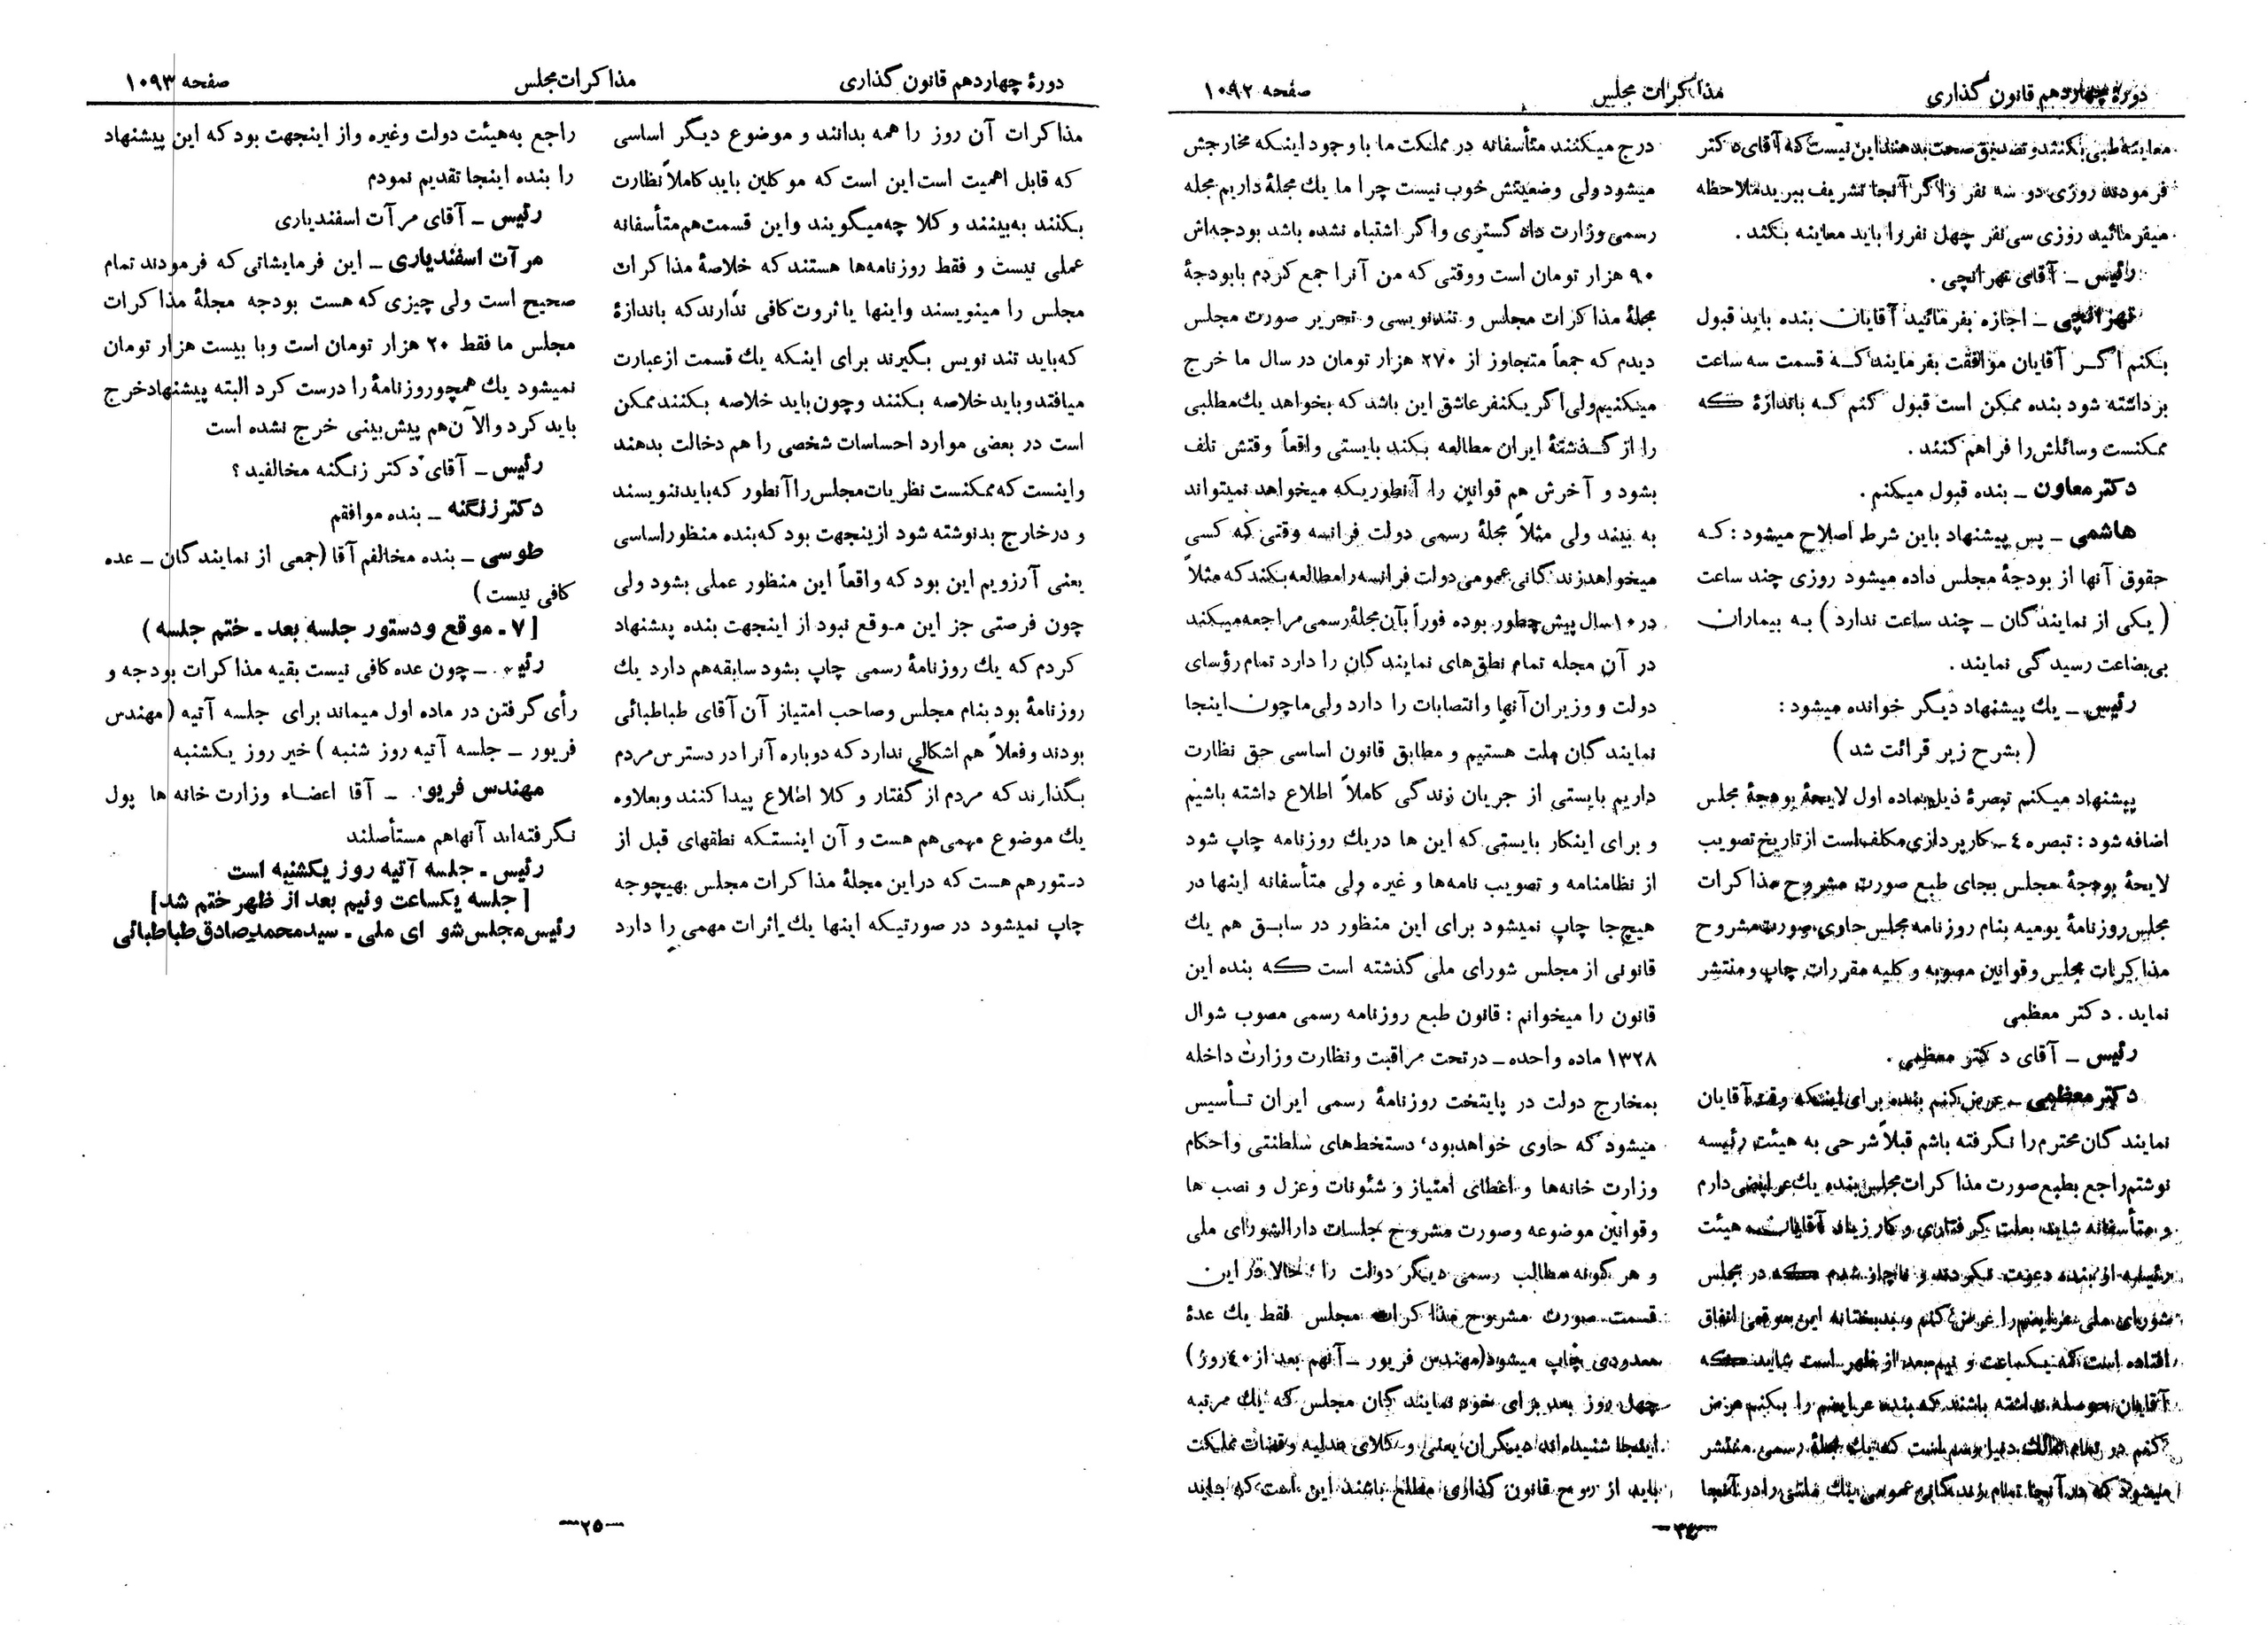 دورهٔ چهاردهم قانون گذاری
مذاکرات مجلس
صفحه ۱۰۹۲
معاینهٔ طبی بکنند و تصدیق صحت بدهند این نیست که آقای دکتر
فرمودند روزی دو سه نفر و اگر آنجا تشریف ببرید ملاحظه
میفرمائید روزی سی نفر چهل نفر را باید معاینه بکند .
رئیس ـ آقای تهرانچی .
تهرانچی ـ اجازه بفرمائید آقایان بنده باید قبول
بکنم اگر آقایان موافقت بفرمایند که قسمت سه ساعت
برداشته شود بنده ممکن است قبول کنم که باندازهٔ که
ممکنست وسائلش را فراهم کنند .
دکتر معاون ـ بنده قبول میکنم .
هاشمی ـ پس پیشنهاد باین شرط اصلاح میشود : که
حقوق آنها از بودجهٔ مجلس داده میشود روزی چند ساعت
( یکی از نمایندگان ـ چند ساعت ندارد ) به بیماران
بی‌بضاعت رسیدگی نمایند .
رئیس ـ یك پیشنهاد دیگر خوانده میشود :
( بشرح زیر قرائت شد )
پیشنهاد میکنم تبصرهٔ ذیل بماده اول لایحهٔ بودجهٔ مجلس
اضافه شود : تبصره ٤ ـ کارپردازی مکلف است از تاریخ تصویب
لایحهٔ بودجهٔ مجلس بجای طبع صورت مشروح مذاکرات
مجلس روزنامهٔ یومیه بنام روزنامه مجلس حاوی صورت مشروح
مذاکرات مجلس و قوانین مصوبه و کلیه مقررات چاپ و منتشر
نماید . دکتر معظمی
رئیس ـ آقای دکتر معظمی .
دکتر معظمی ـ عرض کنم بنده برای اینکه وقت آقایان
نمایندگان محترم را نگرفته باشم قبلاً شرحی به هیئت رئیسه
نوشتم راجع بطبع صورت مذاکرات مجلس بنده یك عرایضی دارم
و متأسفانه شاید بعلت گرفتاری و کار زیاد آقایان هیئت
رئیسه از بنده دعوت نکردند و ناچار شدم که در مجلس
شورای ملی عرایضم را عرض کنم و بدبختانه این موقعی اتفاق
افتاده است که یکساعت و نیم بعد از ظهر است شاید که
آقایان حوصله نداشته باشند که بنده عرایضم را بکنم عرض
کنم در تمام ممالك دنیا رسم است که یك مجلهٔ رسمی منتشر
میشود که در آنجا تمام زندگانی عمومی یك ملتی را در آنجا
درج میکنند متأسفانه در مملکت ما با وجود اینکه مخارجش
میشود ولی وضعیتش خوب نیست چرا ما یك مجلهٔ داریم مجله
رسمی وزارت دادگستری واگر اشتباه نشده باشد بودجه‌اش
۹۰ هزار تومان است ووقتی که من آنرا جمع کردم بابودجهٔ
مجلهٔ مذاکرات مجلس و تندنویسی و تحریر صورت مجلس
دیدم که جمعاً متجاوز از ۲۷۰ هزار تومان در سال ما خرج
میکنیم ولی اگر یکنفر عاشق این باشد که بخواهد یك مطلبی
را از گذشتهٔ ایران مطالعه بکند بایستی واقعاً وقتش تلف
بشود و آخرش هم قوانین را آنطوریکه میخواهد نمیتواند
به بیند ولی مثلاً مجلهٔ رسمی دولت فرانسه وقتی که کسی
میخواهد زندگانی عمومی دولت فرانسه را مطالعه بکند که مثلاً
در ۱۰ سال پیش چطور بوده فوراً بآن مجلهٔ رسمی مراجعه میکند
در آن مجله تمام نطق‌های نمایندگان را دارد تمام رؤسای
دولت و وزیران آنها وانتصابات را دارد ولی ما چون اینجا
نمایندگان ملت هستیم و مطابق قانون اساسی حق نظارت
داریم بایستی از جریان زندگی کاملاً اطلاع داشته باشیم
و برای اینکار بایستی که این ها در یك روزنامه چاپ شود
از نظامنامه و تصویب نامه‌ها و غیره ولی متأسفانه اینها در
هیچ جا چاپ نمیشود برای این منظور در سابق هم یك
قانونی از مجلس شورای ملی گذشته است که بنده این
قانون را میخوانم : قانون طبع روزنامه رسمی مصوب شوال
۱۳۲۸ ماده واحده ـ در تحت مراقبت و نظارت وزارت داخله
بمخارج دولت در پایتخت روزنامهٔ رسمی ایران تأسیس
میشود که حاوی خواهد بود ، دستخط‌های سلطنتی و احکام
وزارت خانه‌ها و اعطای امتیاز و شئونات وعزل و نصب ها
و قوانین موضوعه وصورت مشروح جلسات دارالشورای ملی
و هر گونه مطالب رسمی دیگر دولت را ، حالا در این
قسمت صورت مشروح مذاکرات مجلس فقط یك عدهٔ
معدودی چاپ میشود (مهندس فریور ـ آنهم بعد از ٤۰ روز)
چهل روز بعد برای خود نمایندگان مجلس که یك مرتبه
اینجا شنیده‌اند دیگران یعنی وکلای عدلیه و قضات مملکت
باید از روح قانون گذاری مطلع باشند این است که جاید
ـ۳٤ـ
دورهٔ چهاردهم قانون گذاری
مذاکرات مجلس
صفحه ۱۰۹۳
مذاکرات آن روز را همه بدانند و موضوع دیگر اساسی
که قابل اهمیت است این است که موکلین باید کاملاً نظارت
بکنند به‌بینند و کلا چه میگویند واین قسمت هم متأسفانه
عملی نیست و فقط روزنامه‌ها هستند که خلاصهٔ مذاکرات
مجلس را مینویسند واینها یا ثروت کافی ندارند که باندازهٔ
که باید تند نویس بگیرند برای اینکه یك قسمت از عبارت
میافتد و باید خلاصه بکنند وچون باید خلاصه بکنند ممکن
است در بعضی موارد احساسات شخصی را هم دخالت بدهند
و اینست که ممکنست نظریات مجلس را آنطور که باید ننویسند
و در خارج بد نوشته شود از ینجهت بود که بنده منظور اساسی
یعنی آرزویم این بود که واقعاً این منظور عملی بشود ولی
چون فرصتی جز این موقع نبود از اینجهت بنده پیشنهاد
کردم که یك روزنامهٔ رسمی چاپ بشود سابقه هم دارد یك
روزنامهٔ بود بنام مجلس وصاحب امتیاز آن آقای طباطبائی
بودند و فعلاً هم اشکالی ندارد که دوباره آنرا در دسترس مردم
بگذارند که مردم از گفتار و کلا اطلاع پیدا کنند و بعلاوه
یك موضوع مهمی هم هست و آن اینستکه نطقهای قبل از
دستور هم هست که در این مجلهٔ مذاکرات مجلس بهیچوجه
چاپ نمیشود در صورتیکه اینها یك اثرات مهمی را دارد
راجع به هیئت دولت وغیره واز اینجهت بود که این پیشنهاد
را بنده اینجا تقدیم نمودم
رئیس ـ آقای مرآت اسفندیاری
مرآت اسفندیاری ـ این فرمایشاتی که فرمودند تمام
صحیح است ولی چیزی که هست بودجه مجلهٔ مذاکرات
مجلس ما فقط ۲۰ هزار تومان است وبا بیست هزار تومان
نمیشود یك همچو روزنامهٔ را درست کرد البته پیشنهاد خرج
باید کرد والا آن هم پیش‌بینی خرج نشده است
رئیس ـ آقای دکتر زنگنه مخالفید ؟
دکتر زنگنه ـ بنده موافقم
طوسی ـ بنده مخالفم آقا (جمعی از نمایندگان ـ عده
کافی نیست )
[ ۷ ـ موقع و دستور جلسه بعد ـ ختم جلسه )
رئیـ . ـ چون عده کافی نیست بقیه مذاکرات بودجه و
رأی گرفتن در ماده اول میماند برای جلسه آتیه (مهندس
فریور ـ جلسه آتیه روز شنبه ) خیر روز یکشنبه
مهندس فریور ـ آقا اعضاء وزارت خانه ها پول
نگرفته‌اند آنهاهم مستأصلند
رئیس ـ جلسه آتیه روز یکشنبه است
[ جلسه یکساعت و نیم بعد از ظهر ختم شد ]
رئیس مجلس شو ای ملی ـ سید محمد صادق طباطبائی
ـ۲۵ـ